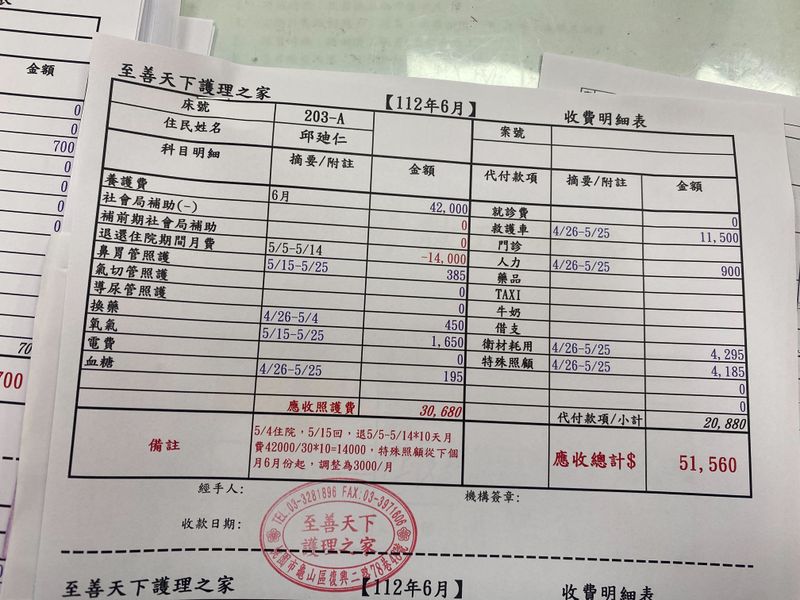 金額
0
0
700
0
0
0
0
0
0
70
700
至善天下護理之家 【112年6月】 收費明細表
床號 203-A 案號
住民姓名 邱廸仁
科目明細 摘要/附註 金額 代付款項 摘要/附註 金額
養護費 6月 42,000 就診費 0
社會局補助(-) 0 救護車 4/26-5/25 11,500
補前期社會局補助 0 門診
退還住院期間月費 5/5-5/14 -14,000 人力 4/26-5/25 900
鼻胃管照護 5/15-5/25 385 藥品
氣切管照護 0 TAXI
導尿管照護 0 牛奶
換藥 4/26-5/4 450 借支
氧氣 5/15-5/25 1,650 衛材耗用 4/26-5/25 4,295
電費 0 特殊照顧 4/26-5/25 4,185
血糖 4/26-5/25 195 0
0
應收照護費 30,680 代付款項/小計 20,880
備註
5/4住院，5/15回，退5/5-5/14*10天月
費42000/30*10=14000，特殊照顧從下個
月6月份起，調整為3000/月
應收總計$ 51,560
經手人: 機構簽章:
收款日期:
TEL:03-3281896 FAX:03-3971606
至善天下
護理之家
桃園市龜山區復興二路78巷48號
至善天下護理之家 【112年6月】 收費明細表